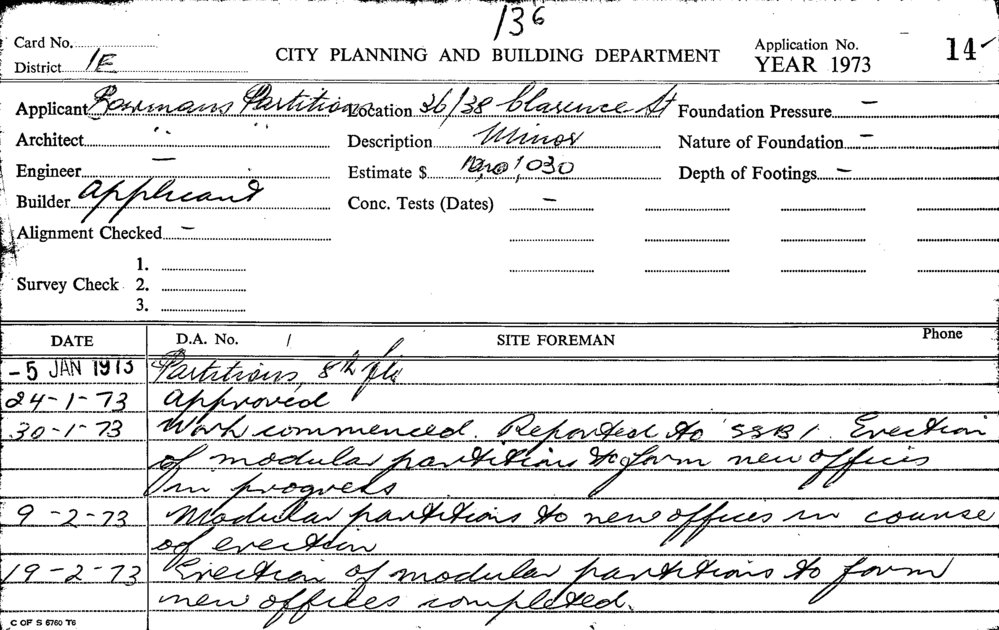 136
Card No.
CITY PLANNING AND BUILDING DEPARTMENT
Application No. 14
District 1E
YEAR 1973
Applicant Bowmans Partitions Location 36/38 Clarence St Foundation Pressure –
Architect " " Description Minor Nature of Foundation –
Engineer – Estimate $ 1,030 Depth of Footings –
Builder Applicant Conc. Tests (Dates) –
Alignment Checked –
1.
Survey Check 2.
3.
DATE D.A. No. / SITE FOREMAN Phone
-5 JAN 1973 Partitions, 8th flr
24-1-73 Approved
30-1-73 Work commenced. Reported to SSB1. Erection
of modular partitions to form new offices
in progress
9-2-73 Modular partitions to new offices in course
of erection
19-2-73 Erection of modular partitions to form
new offices completed.
C OF S 6760 T6